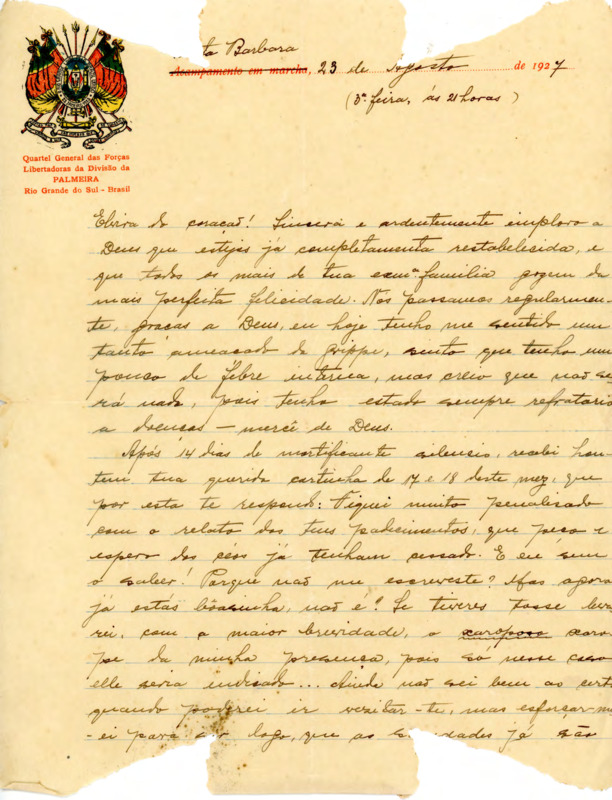 ta Barbara
Acampamento em marcha, 23 de Agosto de 1927
(3ª feira, ás 21 horas)
Quartel General das Forças
Libertadoras da Divisão da
PALMEIRA
Rio Grande do Sul - Brasil
Elvira do coração! Sincera e ardentemente imploro a
Deus que estejas já completamente restabelecida, e
que todos os mais de tua exmª familia gozem da
mais perfeita felicidade. Nós passamos regularmen-
te, graças a Deus, eu hoje tenho me sentido um
tanto ameaçado da grippe, sinto que tenho um
pouco de febre interna, mas creio que não se-
rá nada, pois tenho estado sempre refratario
a doenças — mercê de Deus.
Após 14 dias de mortificante silencio, recebi hon-
tem tua querida cartinha de 17 e 18 deste mez, que
por esta te respondo: Fiquei muito penalisado
com o relato dos teus padecimentos, que peço e
espero dos ceos já tenham cessado. E eu sem
o saber! Porque não me escreveste? Mas agora
já estás bôasinha, não é? Se tiveres tosse leva-
rei, com a maior brevidade, o xaroposo xaro
pe da minha presença, pois só nesse caso
elle seria indicado... Ainda não sei bem ao certo
quando poderei ir vezitar-te, mas esforçar-me-
-ei para ser logo, que as dades já são